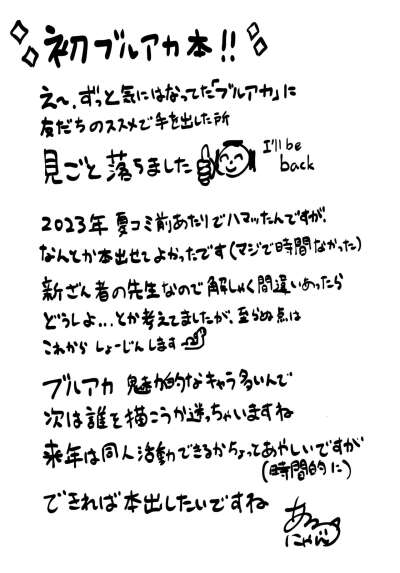 初ブルアカ本!!
え〜、ずっと気にはなってた「ブルアカ」に
友だちのススメで手を出した所
見ごと落ちました
I'll be
back
2023年 夏コミ前あたりでハマったんですが、
なんとか本出せてよかったです(マジで時間なかった)
新ざん者の先生なので解しゃく間違いあったら
どうしよ...とか考えてましたが、至らぬ点は
これからしょーじんします
ブルアカ 魅力的なキャラ多いんで
次は誰を描こうか迷っちゃいますね
来年は同人活動できるかちょってあやしいですが
(時間的に)
できれば本出したいですね